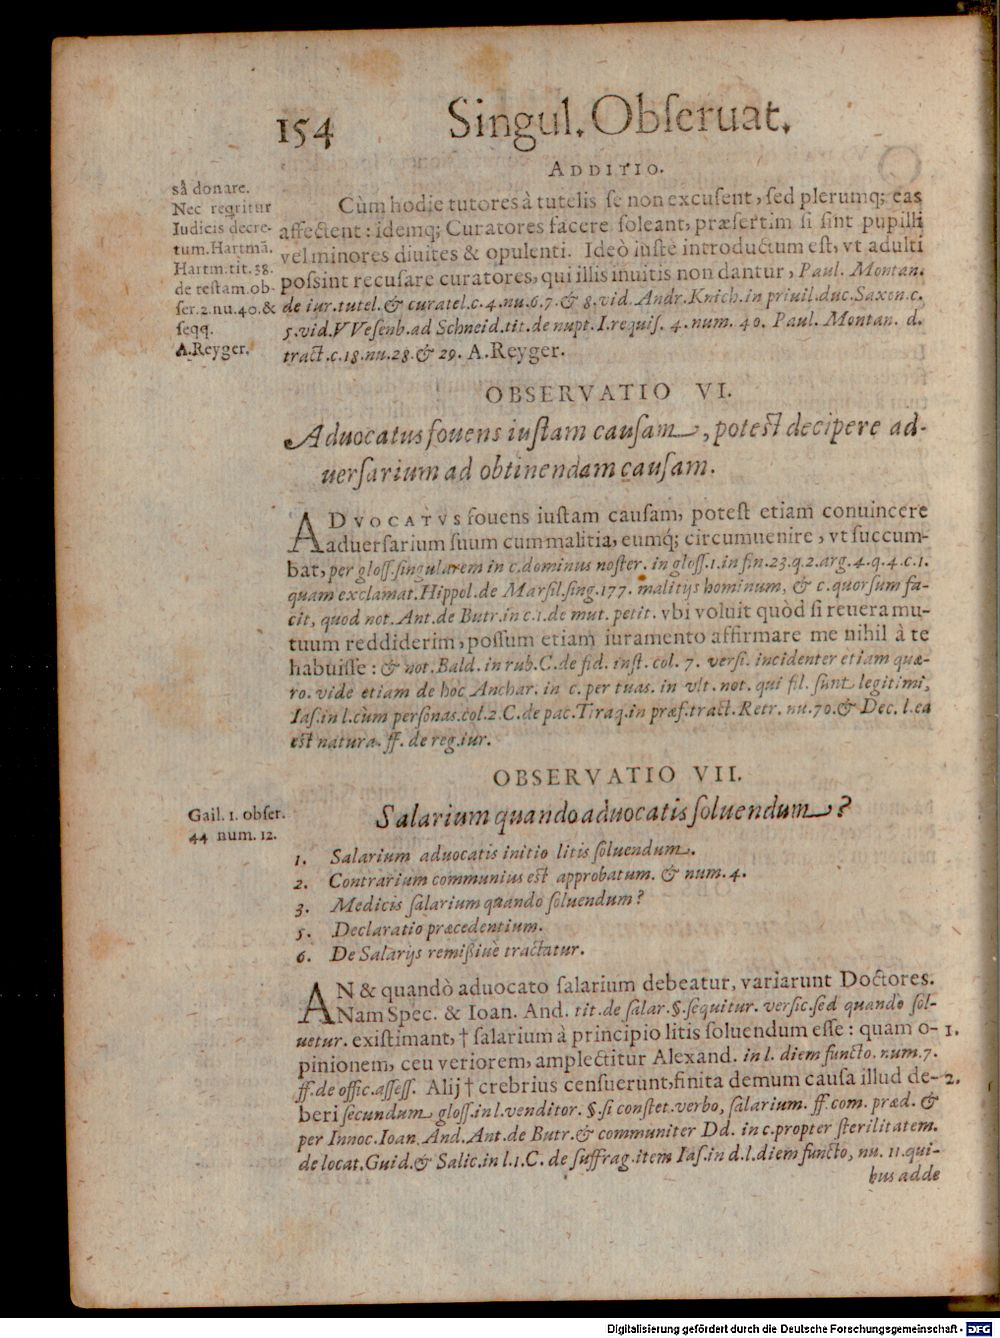 154 Singul. Obſeruat.
ADDITIO.
sâ donare.
Nec regritur
Iudicis decre-
tum. Hartmã.
Hartm. tit. 38.
de teſtam. ob-
ſer. 2. nu. 40. &
ſeqq.
A. Reyger.
Cùm hodie tutores à tutelis ſe non excuſent, ſed plerumq; eas
affectent: idemq; Curatores facere ſoleant, præſertim ſi ſint pupilli
vel minores diuites & opulenti. Ideò iuſtè introductum eſt, vt adulti
poſsint recuſare curatores, qui illis inuitis non dantur, Paul. Montan.
de iur. tutel. & curatel. c. 4. nu. 6. 7. & 8. vid. Andr. Knich. in priuil. duc. Saxon. c.
5. vid. VVeſenb. ad Schneid. tit. de nupt. I. requiſ. 4. num. 40. Paul. Montan. d.
tract. c. 18. nu. 28. & 29. A. Reyger.
OBSERVATIO VI.
Aduocatus fouens iuſtam cauſam, poteſt decipere ad-
uerſarium ad obtinendam cauſam.
ADVOCATVS fouens iuſtam cauſam, poteſt etiam conuincere
aduerſarium ſuum cum malitia, eumq́; circumuenire, vt ſuccum-
bat, per gloſſ. ſingularem in c. dominus noſter. in gloſſ. 1. in fin. 23. q. 2. arg. 4. q. 4. c. 1.
quam exclamat. Hippol. de Marſil. ſing. 177. malitijs hominum, & c. quorſum fa-
cit, quod not. Ant. de Butr. in c. 1. de mut. petit. vbi voluit quòd ſi reuera mu-
tuum reddiderim, poſſum etiam iuramento affirmare me nihil à te
habuiſſe: & not. Bald. in rub. C. de fid. inſt. col. 7. verſi. incidenter etiam quæ-
ro. vide etiam de hoc Anchar. in c. per tuas. in vlt. not. qui fil. ſunt legitimi,
Iaſ. in l. cùm perſonas. col. 2. C. de pac. Tiraq. in præf. tract. Retr. nu. 70. & Dec. l. ea
eſt natura. ff. de reg. iur.
OBSERVATIO VII.
Gail. 1. obſer.
44 num. 12.
Salarium quando aduocatis ſoluendum?
1. Salarium aduocatis initio litis ſoluendum.
2. Contrarium communius eſt approbatum. & num. 4.
3. Medicis ſalarium quando ſoluendum?
5. Declaratio præcedentium.
6. De Salarijs remißiuè tractatur.
AN & quandò aduocato ſalarium debeatur, variarunt Doctores.
Nam Spec. & Ioan. And. tit. de ſalar. §. ſequitur. verſic. ſed quando ſol-
uetur. exiſtimant, † ſalarium à principio litis ſoluendum eſſe: quam o- 1.
pinionem, ceu veriorem, amplectitur Alexand. in l. diem functo. num. 7.
ff. de offic. aſſeſſ. Alij † crebrius cenſuerunt, finita demum cauſa illud de- 2.
beri ſecundum gloſſ. in l. venditor. §. ſi conſtet. verbo, ſalarium. ff. com. præd. &
per Innoc. Ioan. And. Ant. de Butr. & communiter Dd. in c. propter ſterilitatem.
de locat. Guid. & Salic. in l. 1. C. de ſuffrag. item Iaſ. in d. l. diem functo, nu. 11. qui-
bus adde
Digitalisierung gefördert durch die Deutsche Forschungsgemeinschaft - DFG